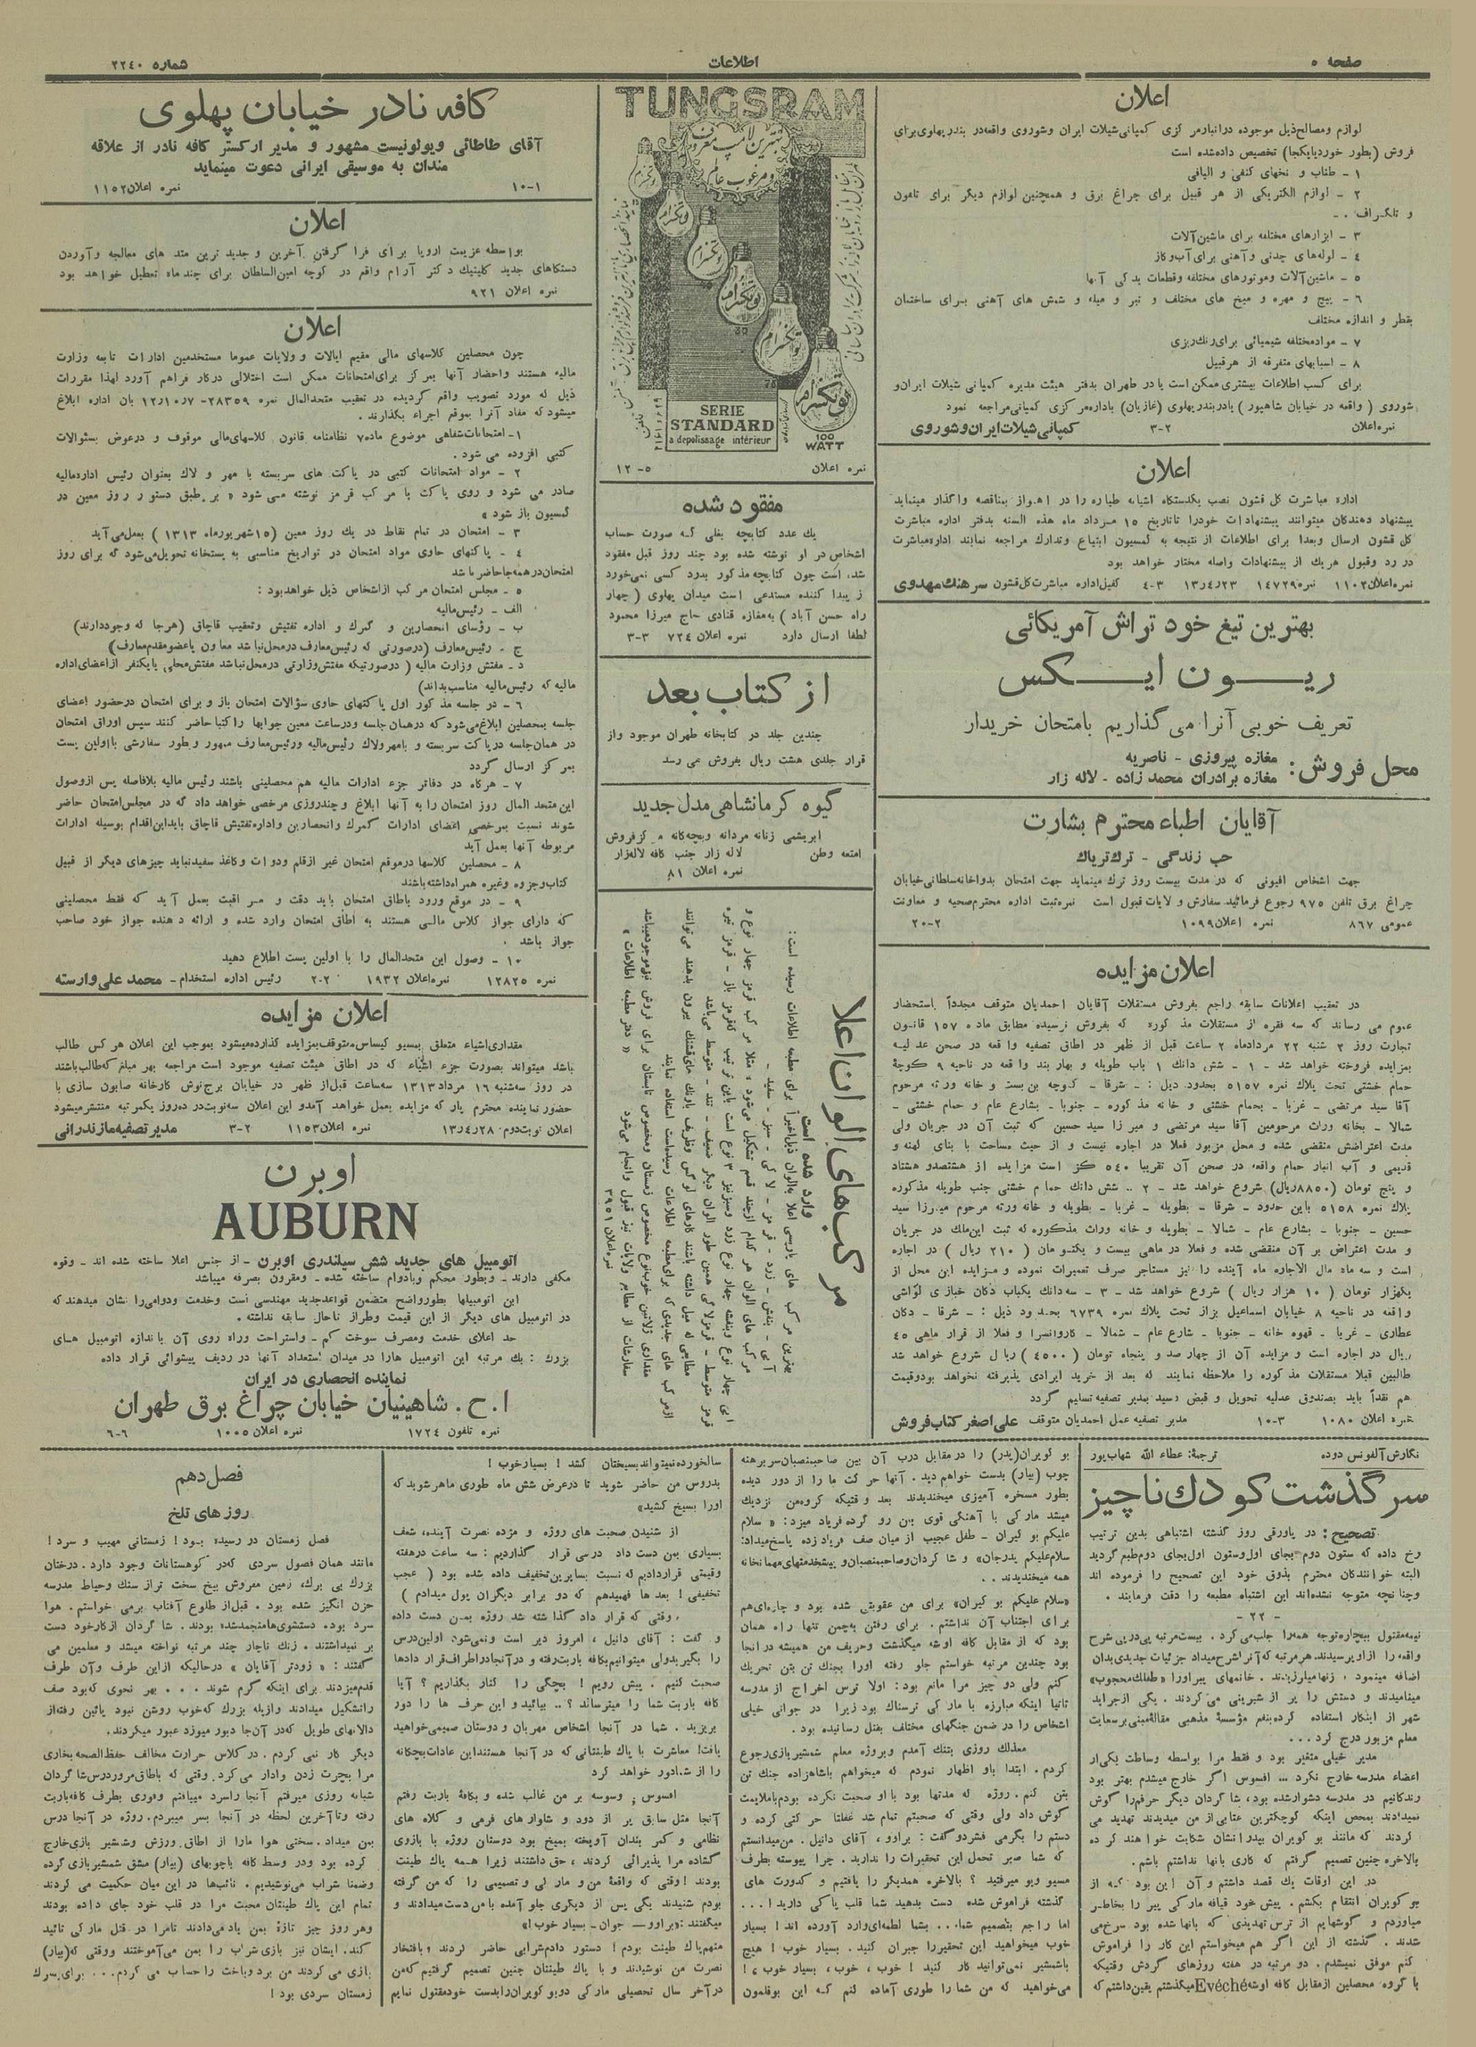 صفحه ٥
اطلاعات
شماره ٢٢٤٠
اعلان
لوازم ومصالح ذیل موجوده درانبارمرکزی کمپانی شیلات ایران وشوروی واقعه در بندرپهلوی برای
فروش (بطور خرد یا یکجا) تخصیص داده شده است
١ - طناب و نخهای کنفی و الیافی
٢ - لوازم الکتریکی از هر قبیل برای چراغ برق و همچنین لوازم دیگر برای تلفون
و تلگراف . -
٣ - ابزارهای مختلفه برای ماشین آلات
٤ - لوله های چدنی و آهنی برای آب و گاز
٥ - ماشین آلات وموتورهای مختلفه وقطعات یدکی آنها
٦ - پیچ و مهره و میخ های مختلف و تیر و میله و شمش های آهنی برای ساختمان
بقطر و اندازه مختلف
٧ - موادمختلفه شیمیائی برای رنگ ریزی
٨ - اسبابهای متفرقه از هرقبیل
برای کسب اطلاعات بیشتری ممکن است یا در طهران بدفتر هیئت مدیره کمپانی شیلات ایران و
شوروی (واقعه در خیابان شاهپور) یا در بندرپهلوی (غازیان) باداره مرکزی کمپانی مراجعه نمود
نمره اعلان ٣-٢ کمپانی شیلات ایران و شوروی
اعلان
اداره مباشرت کل قشون نصب یکدستگاه آشیانه طیاره را در اهواز بمناقصه واگذار مینماید
پیشنهاد دهندگان میتوانند پیشنهادات خودرا تا تاریخ ١٥ مرداد ماه هذه السنه بدفتر اداره مباشرت
کل قشون ارسال وبعدا برای اطلاعات از نتیجه به کمسیون ابتیاع وتدارک مراجعه نمایند اداره مباشرت
در رد وقبول هریک از پیشنهادات واصله مختار خواهد بود
نمره اعلان ١١٠٢ نمره ١٤٧٢٩ ١٣ر٤ر٢٣ ٤-٣ کفیل اداره مباشرت کل قشون سرهنگ مهدوی
بهترین تیغ خود تراش آمریکائی
ریون ایکس
تعریف خوبی آنرا می گذاریم بامتحان خریدار
محل فروش: مغازه پیروزی - ناصریه
مغازه برادران محمد زاده - لاله زار
آقایان اطباء محترم بشارت
حب زندگی - ترک تریاک
جهت اشخاص افیونی که در مدت بیست روز ترک مینماید جهت امتحان بدواخانه سلطانی خیابان
چراغ برق تلفن ٩٧٥ رجوع فرمائید سفارش و لایات قبول است نمره ثبت اداره محترم صحیه و معاونت
عمومی ٨٦٧ نمره اعلان ١٠٩٩ ٢٠-٢
اعلان مزایده
در تعقیب اعلانات سابقه راجع بفروش مستغلات آقایان احمدیان متوقف مجدداً باستحضار
عموم می رساند که سه فقره از مستغلات مذکوره که بفروش نرسیده مطابق ماده ١٥٧ قانون
تجارت روز ٢ شنبه ٢٢ مردادماه ٢ ساعت قبل از ظهر در اطاق تصفیه واقعه در صحن عدلیه
بمزایده فروخته خواهد شد - ١ - شش دانک ١ باب طویله و بهاربند واقعه در ناحیه ٩ کوچهٔ
حمام خشتی تحت پلاک نمره ٥١٥٧ بحدود ذیل : - شرقا - کوچه بن بست و خانه ورثه مرحوم
آقا سید مرتضی - غربا - بحمام خشتی و خانه مذکوره - جنوبا - بشارع عام و حمام خشتی -
شمالا - بخانه وراث مرحومین آقا سید مرتضی و میرزا سید حسین که ثبت آن در جریان ولی
مدت اعتراضش منقضی شده و محل مزبور فعلا در اجاره نیست و از حیث مساحت با بنای کهنه و
قدیمی و آب انبار حمام واقعه در صحن آن تقریبا ٥٤٠ گز است مزایده از هشتصدو هشتاد
و پنج تومان (٨٨٥٠ریال) شروع خواهد شد - ٢ .. شش دانک حمام خشتی جنب طویله مذکوره
پلاک نمره ٥١٥٨ باین حدود - شرقا - بطویله - غربا - بطویله و خانه ورثه مرحوم میرزا سید
حسین - جنوبا - بشارع عام - شمالا - بطویله و خانه وراث مذکوره که ثبت این ملک در جریان
و مدت اعتراض بر آن منقضی شده و فعلا در ماهی بیست و یکتومان (٢١٠ ریال) در اجاره
است و سه ماه مال الاجاره ماه آینده را نیز مستاجر صرف تعمیرات نموده و مزایده این محل از
یکهزار تومان (١٠ هزار ریال) شروع خواهد شد - ٣ - سه دانک یکباب دکان خبازی لواشی
واقعه در ناحیه ٨ خیابان اسماعیل بزاز تحت پلاک نمره ٦٧٣٩ بحدود ذیل : - شرقا - دکان
عطاری - غربا - قهوه خانه - جنوبا - شارع عام - شمالا - کاروانسرا و فعلا از قرار ماهی ٤٥
ریال در اجاره است و مزایده آن از چهارصد و پنجاه تومان (٤٥٠٠) ریال شروع خواهد شد
طالبین قبلا مستغلات مذکوره را ملاحظه نمایند که بعد از خرید ایرادی پذیرفته نخواهد بودوقیمت
هم نقداً باید بصندوق عدلیه تحویل و قبض رسید بمدیر تصفیه تسلیم گردد
نمره اعلان ١٠٨٠ ١٠-٣ مدیر تصفیه عمل احمدیان متوقف علی اصغر کتاب فروش
TUNGSRAM
بهترین لامپ معروف
و مرغوب عالم
تونگزرام
SERIE
STANDARD
à depolissage intérieur
100
WATT
نمره اعلان ١٢-٥
مفقود شده
یک عدد کتابچه بغلی که صورت حساب
اشخاص در او نوشته شده بود چند روز قبل مفقود
شده است چون کتابچه مذکور بدرد کسی نمی خورد
از پیدا کننده مستدعی است میدان پهلوی (چهار
راه حسن آباد) به مغازه قنادی حاج میرزا محمود
لطفا ارسال دارد نمره اعلان ٧٢٤ ٣-٣
از کتاب بعد
چندین جلد در کتابخانه طهران موجود واز
قرار جلدی هشت ریال بفروش می رسد
گیوه کرمانشاهی مدل جدید
ابریشمی زنانه مردانه وبچه گانه مرکز فروش
امتعه وطن لاله زار جنب کافه لاله زار
نمره اعلان ٨١
مرکب های الوان اعلا
وارد شده است
بهترین مرکب های پاریسی اعلا بالوان ذیل اخیراً برای مطبعه اطلاعات رسیده است :
آبی - بنفش - زرد - قرمز - لاکی - سبز - سفید -
نمره اعلان ٣٩٥١
کافه نادر خیابان پهلوی
آقای طاطائی ویولونیست مشهور و مدیر ارکستر کافه نادر از علاقه
مندان به موسیقی ایرانی دعوت مینماید
١٠-١ نمره اعلان ١١٥٢
اعلان
بواسطه عزیمت اروپا برای فرا گرفتن آخرین و جدید ترین متد های معالجه و آوردن
دستگاهای جدید کلینیک دکتر آرام واقع در کوچه امین السلطان برای چند ماه تعطیل خواهد بود
نمره اعلان ٩٢١
اعلان
چون محصلین کلاسهای مالی مقیم ایالات و ولایات عموما مستخدمین ادارات تابعه وزارت
مالیه هستند واحضار آنها بمرکز برای امتحانات ممکن است اختلالی درکار فراهم آورد لهذا مقررات
ذیل که مورد تصویب واقع گردیده در تعقیب متحدالمال نمره ٢٨٣٥٩- ١٢ر١٠ر٧ بان اداره ابلاغ
میشود که مفاد آنرا بموقع اجراء بگذارند .
١- امتحانات شفاهی موضوع ماده ٧ نظامنامه قانون کلاسهای مالی موقوف و درعوض بسئوالات
کتبی افزوده می شود .
٢ - مواد امتحانات کتبی در پاکت های سربسته با مهر و لاک بعنوان رئیس اداره مالیه
صادر می شود و روی پاکت با مرکب قرمز نوشته می شود « بر طبق دستور روز معین در
کمسیون باز شود »
٣ - امتحان در تمام نقاط در یک روز معین (١٥شهریورماه ١٣١٣) بعمل می آید
٤ - پاکتهای حاوی مواد امتحان در تواریخ مناسبی به پستخانه تحویل می شود که برای روز
امتحان در همه جا حاضر باشد
٥ - مجلس امتحان مرکب از اشخاص ذیل خواهد بود :
الف - رئیس مالیه
ب - رؤسای انحصارین و گمرک و اداره تفتیش وتعقیب قاچاق (هرجا که وجوددارند)
ج - رئیس معارف (درصورتی که رئیس معارف در محل نباشد معاون یا عضو مقدم معارف)
د - مفتش وزارت مالیه ( درصورتیکه مفتش وزارتی درمحل نباشد مفتش محلی یا یکنفر از اعضای اداره
مالیه که رئیس مالیه مناسب بداند)
٦ - در جلسه مذکور اول پاکتهای حاوی سؤالات امتحان باز و برای امتحان درحضور اعضای
جلسه بمحصلین ابلاغ می شود که درهمان جلسه و درساعت معین جوابها را کتبا حاضر کنند سپس اوراق امتحان
در همان جلسه در پاکت سربسته و بامهر ولاک رئیس مالیه ورئیس معارف ممهور و بطور سفارشی با اولین پست
بمرکز ارسال گردد
٧ - هرگاه در دفاتر جزء ادارات مالیه هم محصلینی باشند رئیس مالیه بلافاصله پس از وصول
این متحد المال روز امتحان را به آنها ابلاغ و چند روزی مرخصی خواهد داد که در مجلس امتحان حاضر
شوند نسبت بمرخصی اعضای ادارات گمرک و انحصارین و اداره تفتیش قاچاق باید این اقدام بوسیله ادارات
مربوطه آنها بعمل آید
٨ - محصلین کلاسها درموقع امتحان غیر از قلم ودوات و کاغذ سفید نباید چیزهای دیگر از قبیل
کتاب و جزوه وغیره همراه داشته باشند
٩ - در موقع ورود باطاق امتحان باید دقت و مراقبت بعمل آید که فقط محصلینی
که دارای جواز کلاس مالی هستند به اطاق امتحان وارد شده و ارائه دهنده جواز خود صاحب
جواز باشد .
١٠ - وصول این متحدالمال را با اولین پست اطلاع دهید
نمره ١٢٨٢٥ نمره اعلان ١٩٣٢ ٢-٢ رئیس اداره استخدام - محمد علی وارسته
اعلان مزایده
مقداری اشیاء متعلق بمسیو کیساس متوقف بمزایده گذارده میشود بموجب این اعلان هر کس طالب
باشد میتواند بصورت جزء اشیاء که در اطاق هیئت تصفیه موجود است مراجعه بهر مبلغ که طالب باشند
در روز سه شنبه ١٦ مرداد ١٣١٣ سه ساعت قبل از ظهر در خیابان برج نوش کارخانه صابون سازی با
حضور نماینده محترم پارکه مزایده بعمل خواهد آمد و این اعلان سه نوبت در ده روز یکمرتبه منتشر میشود
اعلان نوبت دوم ١٣ر٤ر٢٨ نمره اعلان ١١٥٣ ٣-٢ مدیر تصفیه مازندرانی
اوبرن
AUBURN
اتومبیل های جدید شش سیلندری اوبرن - از جنس اعلا ساخته شده اند - وقوه
مکفی دارند - وبطور محکم وبادوام ساخته شده - ومقرون بصرفه میباشد
این اتومبیلها بطور واضح متضمن قواعد جدید مهندسی است وخدمت ودوامی را نشان میدهند که
در اتومبیل های دیگر از این قیمت وطراز تاحال سابقه نداشته .
حد اعلای خدمت ومصرف سوخت کم - واستراحت وراه روی آن باندازه اتومبیل های
بزرگ : یک مرتبه این اتومبیل هارا در میدان استعداد آنها در ردیف پیشوائی قرار داده
نماینده انحصاری در ایران
ا . ح . شاهینیان خیابان چراغ برق طهران
نمره تلفون ١٧٢٤ نمره اعلان ١٠٠٥ ٦-٦
نگارش آلفونس دوده ترجمهٔ: عطاء الله شهاب پور
سر گذشت کودک ناچیز
تصحیح: در پاورقی روز گذشته اشتباهی بدین ترتیب
رخ داده که ستون دوم بجای اول وستون اول بجای دوم طبع گردید
البته خوانندگان محترم بذوق خود این تصحیح را فرموده اند
وچنانچه متوجه نشده اند این اشتباه مطبعه را دقت فرمایند .
- ٢٢ -
نیمه مقتول بیچاره توجه همه را جلب می کرد . بیست مرتبه پی در پی شرح
واقعه را از او پرسیدند هر مرتبه که آنرا شرح میداد جزئیات جدیدی بدان
اضافه مینمود ، زنها میلرزیدند . خانمهای پیر اورا «طفلک محبوب»
مینامیدند و دستش را پر از شیرینی می کردند . یکی از جراید
شهر از اینکار استفاده کرده بنفع مؤسسهٔ مذهبی مقالهٔ مبنی بر سعایت
معلم مزبور درج کرد ...
مدیر خیلی متغیر بود و فقط مرا بواسطه وساطت یکی از
اعضاء مدرسه خارج نکرد ... افسوس اگر خارج میشدم بهتر بود
زندگانیم در مدرسه دشوار شده بود، شاگردان دیگر حرفم را گوش
نمیدادند بمحض اینکه کوچکترین عتابی از من میدیدند تهدید می
کردند که مانند بوکویران بپدرانشان شکایت خواهند کرد
بالاخره چنین تصمیم گرفتم که کاری بانها نداشته باشم .
در این اوقات یک قصد داشتم و آن این بود که از
بوکویران انتقام بکشم . پیش خود قیافه مارکی پیر را بخاطر
میاوردم و گوشهایم از ترس تهدیدی که بانها شده بود سرخ می
شدند . گذشته از این اگر هم میخواستم این کار را فراموش
کنم موفق نمیشدم . دو مرتبه در هفته روزهای گردش وقتیکه
با گروه محصلین از مقابل کافه اوشه Évêché میگذشتم یقین داشتم که
بوکویران(پدر) را در مقابل درب آن بین صاحبمنصبان سربرهنه
چوب (بیار) بدست خواهم دید . آنها حرکت ما را از دور دیده
بطور مسخره آمیزی میخندیدند بعد وقتیکه گروه من نزدیک
میشد مارکی با آهنگی قوی بمن رو کرده فریاد میزد : « سلام
علیکم بوکویران - طفل عجیب از میان صف فریاد زده پاسخ میداد:
سلام علیکم پدرجان» و شاگردان و صاحبمنصبان و پیشخدمتهای مهمانخانه
همه میخندیدند . .
«سلام علیکم بوکیران» برای من عقوبتی شده بود و چاره ای هم
برای اجتناب آن نداشتم . برای رفتن به چمن تنها راه همان
بود که از مقابل کافه اوشه میگذشت وحریف من همیشه در آنجا
بود چندین مرتبه خواستم جلو رفته اورا بجنک تن بتن تحریک
کنم ولی دو چیز مرا مانع بود : اولا ترس اخراج از مدرسه
ثانیا اینکه مبارزه با مارکی ترسناک بود زیرا در جوانی خیلی
اشخاص را در ضمن جنگهای مختلف بقتل رسانیده بود .
معذلک روزی بتنک آمدم وبروژه معلم شمشیربازی رجوع
کردم . ابتدا باو اظهار نمودم که میخواهم باشاهزاده جنک تن
بتن کنم . روژه که مدتها بود با او صحبت نکرده بودم باملایمت
گوش داد ولی وقتی که صحبتم تمام شد غفلتا حرکتی کرده و
دستم را بگرمی فشرد و گفت : براوو ، آقای دانیل . من میدانستم
که شما صبر تحمل این تحقیرات را ندارید . چرا پیوسته بطرف
مسیو ویو میرفتید ؟ بالاخره همدیگر را یافتیم و کدورت های
گذشته فراموش شده دست بدهید شما قلب پاکی دارید! ...
اما راجع بتصمیم شما... بشما لطمه ای وارد آورده اند! بسیار
خوب میخواهید این تحقیر را جبران کنید . بسیار خوب ! هیچ
باشمشیر نمی توانید کار کنید ! خوب ، خوب ، بسیار خوب ، !
می خواهید که من شما را طوری آماده کنم که این بوقلمون
سالخورده نمیتواند بسیختان کشد ! بسیار خوب !
بدروس من حاضر شوید تا درعرض شش ماه طوری ماهر شوید که
اورا بسیخ کشید»
از شنیدن صحبت های روژه و مژده نصرت آینده، شعف
بسیاری بمن دست داد درسی قرار گذاردیم : سه ساعت در هفته
وقیمتی قراردادیم که نسبت بسایرین تخفیف داده شده بود ( عجب
تخفیفی ! بعدها فهمیدم که دو برابر دیگران پول میدادم )
، وقتی که قرار داد گذاشته شد روژه بمن دست داده
و گفت : آقای دانیل ، امروز دیر است و نمی شود اولین درس
را بگیرید ولی میتوانیم بکافه باربت رفته و در آنجا در اطراف قرار دادها
صحبت کنیم . پیش رویم ! بچگی را کنار بگذاریم ؟ آیا
کافه باربت شما را میترساند ؟ .. بیائید و این حرف ها را دور
بریزید . شما در آنجا اشخاص مهربان و دوستان صمیمی خواهید
یافت! معاشرت با پاک طینتانی که در آنجا هستند این عادات بچگانه
را از شما دور خواهد کرد
افسوس ! وسوسه بر من غالب شده و بکافهٔ باربت رفتم
آنجا مثل سابق پر از دود و شلوار های قرمز و کلاه های
نظامی و کمربندان آویخته بمیخ بود دوستان روژه با بازوی
گشاده مرا پذیرائی کردند ، حق داشتند زیرا همه پاک طینت
بودند ! وقتی که واقعهٔ من و مارکی و تصمیمی را که من گرفته
بودم شنیدند یکی پس از دیگری جلو آمده با من دست میدادند و
میگفتند : «براوو - جوان - بسیار خوب !»
منهم پاک طینت بودم ! دستور دادم شرابی حاضر کردند ؛ بافتخار
نصرت من نوشیدند و با پاک طینتان چنین تصمیم گرفتیم که من
درآخر سال تحصیلی مارکی دو بوکویران را بدست خود مقتول نمایم
فصل دهم
روز های تلخ
فصل زمستان در رسیده بود ! زمستانی مهیب و سرد !
مانند همان فصول سردی که در کوهستانات وجود دارد . درختان
بزرگ بی برک ، زمین مفروش بیخ سخت تر از سنک وحیاط مدرسه
حزن انگیز شده بود . قبل از طلوع آفتاب برمی خواستم . هوا
سرد بود . دستشوی ها منجمد شده بودند . شاگردان از کارخود دست
بر نمیداشتند . زنک ناچار چند مرتبه نواخته میشد و معلمین می
گفتند : « زودتر آقایان » درحالیکه از این طرف و آن طرف
قدم میزدند برای اینکه گرم شوند . . . بهر نحوی که بود صف
را تشکیل میدادند و از پله بزرگ که خوب روشن نبود پائین رفته از
دالانهای طویل که در آن جا دبور میوزد عبور میکردند .
دیگر کار نمی کردم . درکلاس حرارت مخالف حفظ الصحه بخاری
مرا بچرت زدن وادار می کرد. وقتی که باطاق مرور درس شاگردان
شبانه روزی میرفتم آنجا را سرد مییافتم وفوری بطرف کافه باربت
رفته وتا آخرین لحظه در آنجا بسر میبردم . روژه در آنجا درس
بمن میداد . سختی هوا مارا از اطاق ورزش وشمشیر بازی خارج
کرده بود ودر وسط کافه با چوبهای (بیار) مشق شمشیر بازی کرده
وضمنا شراب می نوشیدیم . نائب ها در این میان حکمیت می کردند
تمام این پاک طینتان محبت مرا در قلب خود جای داده بودند
وهر روز چیز تازهٔ بمن یاد می دادند تا مرا در قتل مارکی تائید
کند . ایشان نیز بازی شراب را بمن می آموختند ووقتی که (بیار)
بازی می کردند من برد وباخت را حساب می کردم . . . برای بزرک
زمستان سردی بود !